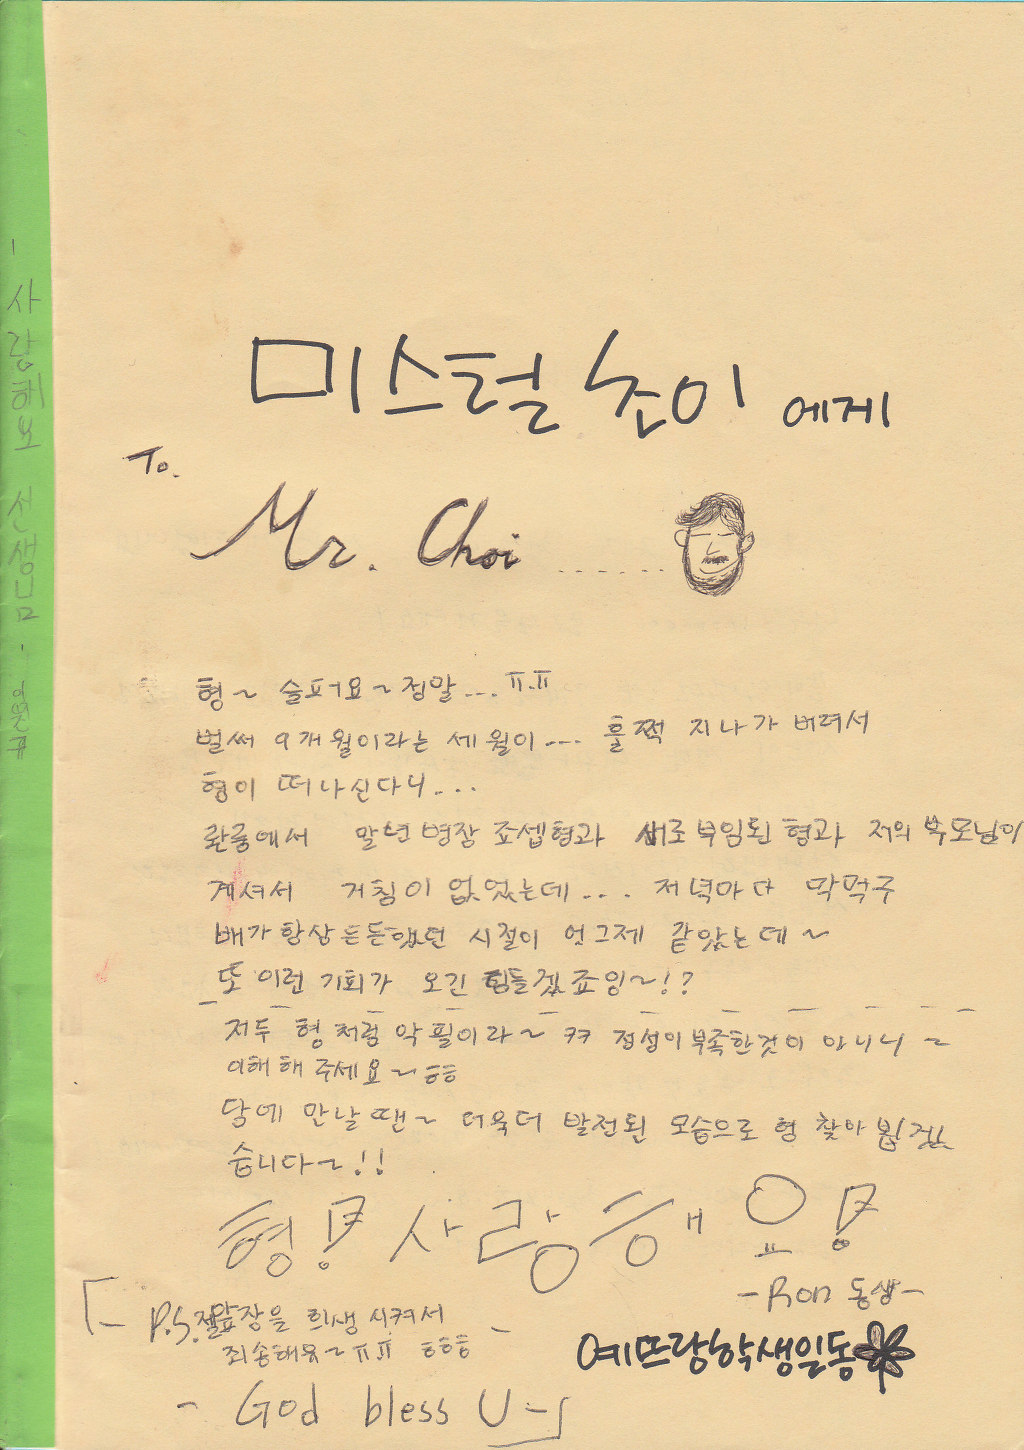 - 사랑해요 선생님 -
미스털 초이 에게
To.
Mr. Choi ......
형~ 슬퍼요~ 정말... ㅠ.ㅠ
벌써 9개월이라는 세월이... 훌쩍 지나가 버려서
형이 떠나신다니...
말년 병장 죠셉형과 새로 부임된 형과 저의 부모님이
계셔서 거침이 없었는데... 저녁마다 막먹구
배가 항상 든든했던 시절이 엇그제 같았는데~
또 이런 기회가 오긴 힘들겠죠잉~!?
저두 형처럼 악필이라~ ㅋㅋ 정성이 부족한것이 아니니 ~
이해해 주세요~ ㅎㅎ
담에 만날땐~ 더욱더 발전된 모습으로 형 찾아 뵙겠
습니다~!!
형! 사랑해요!
-Ron 동생-
P.S. 젤앞장을 희생시켜서
죄송해욧~ㅠ.ㅠ ㅎㅎㅎ
예뜨랑학생일동
- God bless U -